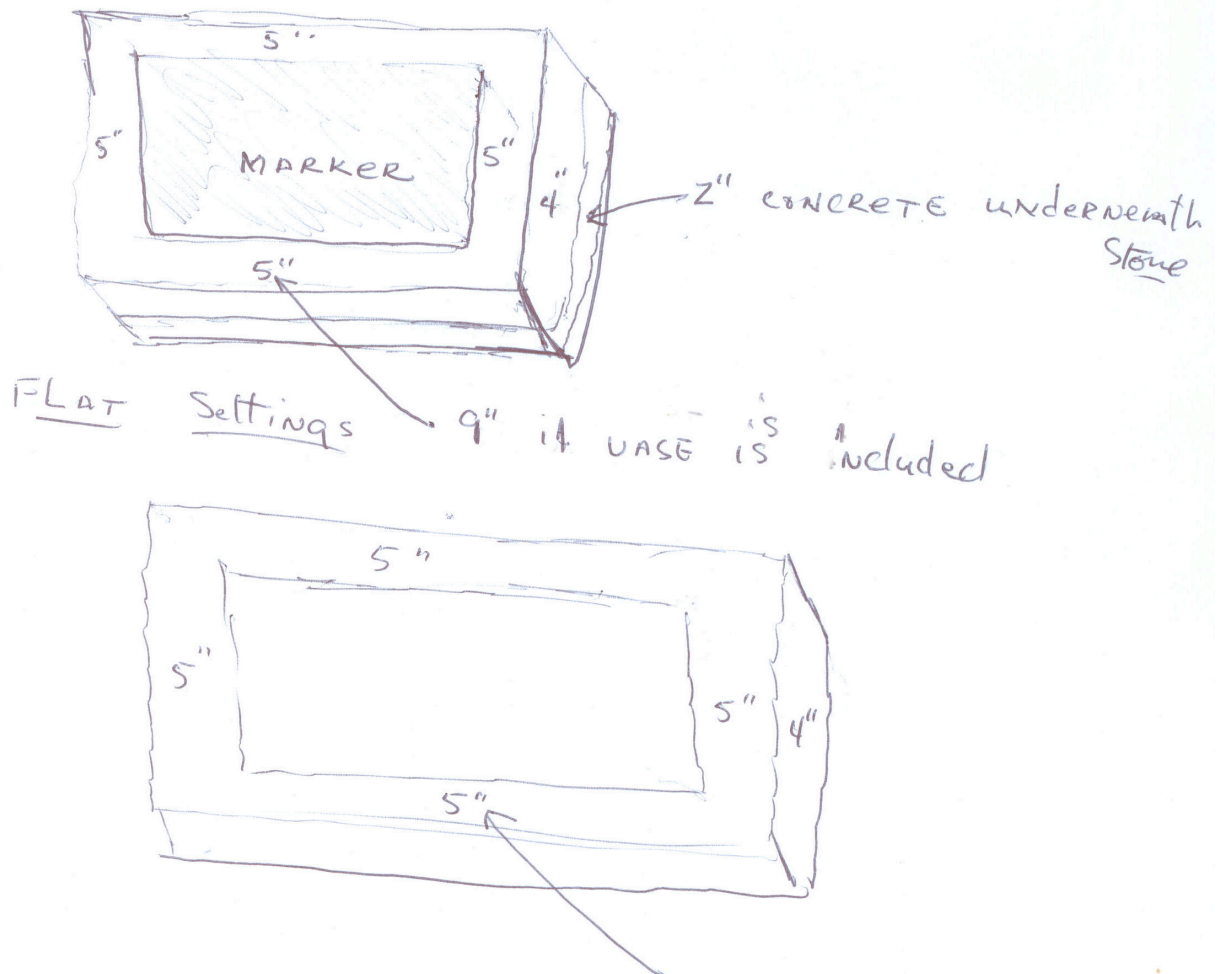 5"
5"
MARKER
5"
4"
2" CONCRETE UNderNeath
Stone
5"
FLAT Settings
9" if VASE is is iNcluded
5"
5"
5"
4"
5"